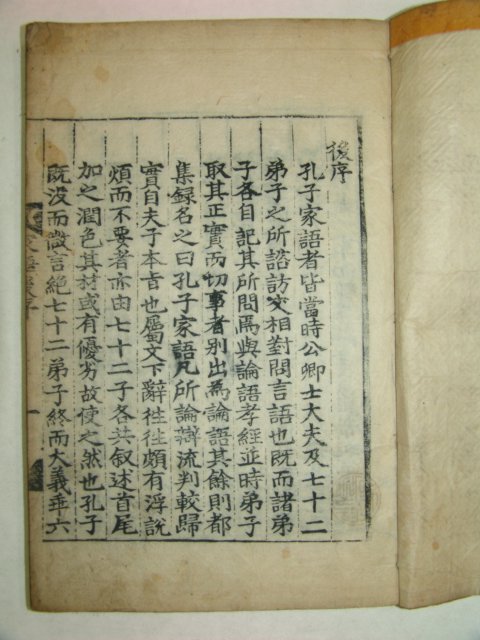 後序
孔子家語者皆當時公卿士大夫及七十二
弟子之所諮訪交相對問言語也既而諸弟
子各自記其所問焉與論語孝經並時弟子
取其正實而切事者別出爲論語其餘則都
集録名之曰孔子家語凡所論辯流判較歸
實自夫子本旨也屬文下辭徃徃頗有浮說
煩而不要者亦由七十二子各共叙述首尾
加之潤色其材或有優劣故使之然也孔子
既没而微言絶七十二弟子終而大義乖六